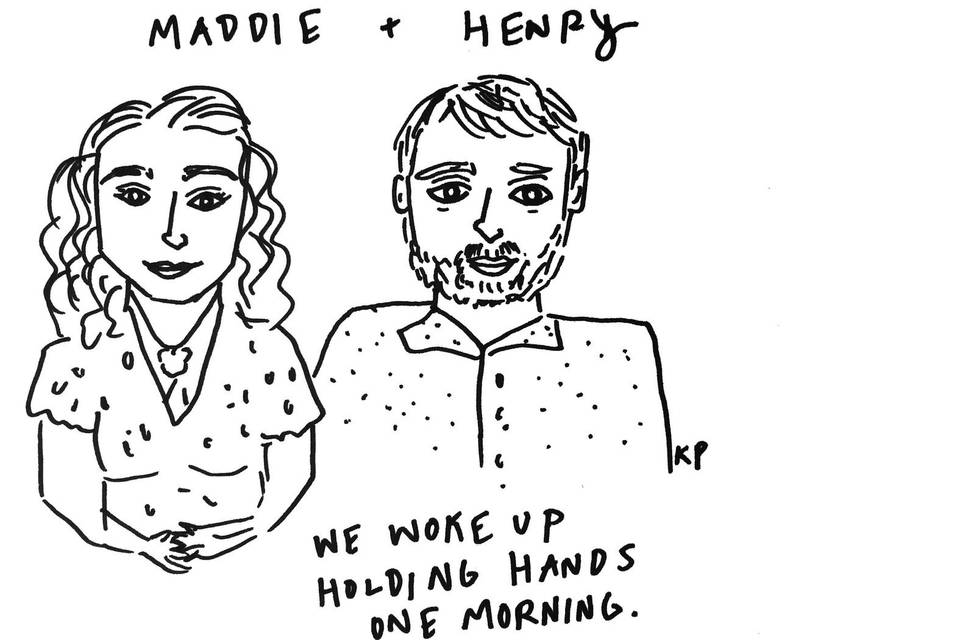 MADDIE + HENRY
KP
WE WOKE UP
HOLDING HANDS
ONE MORNING.